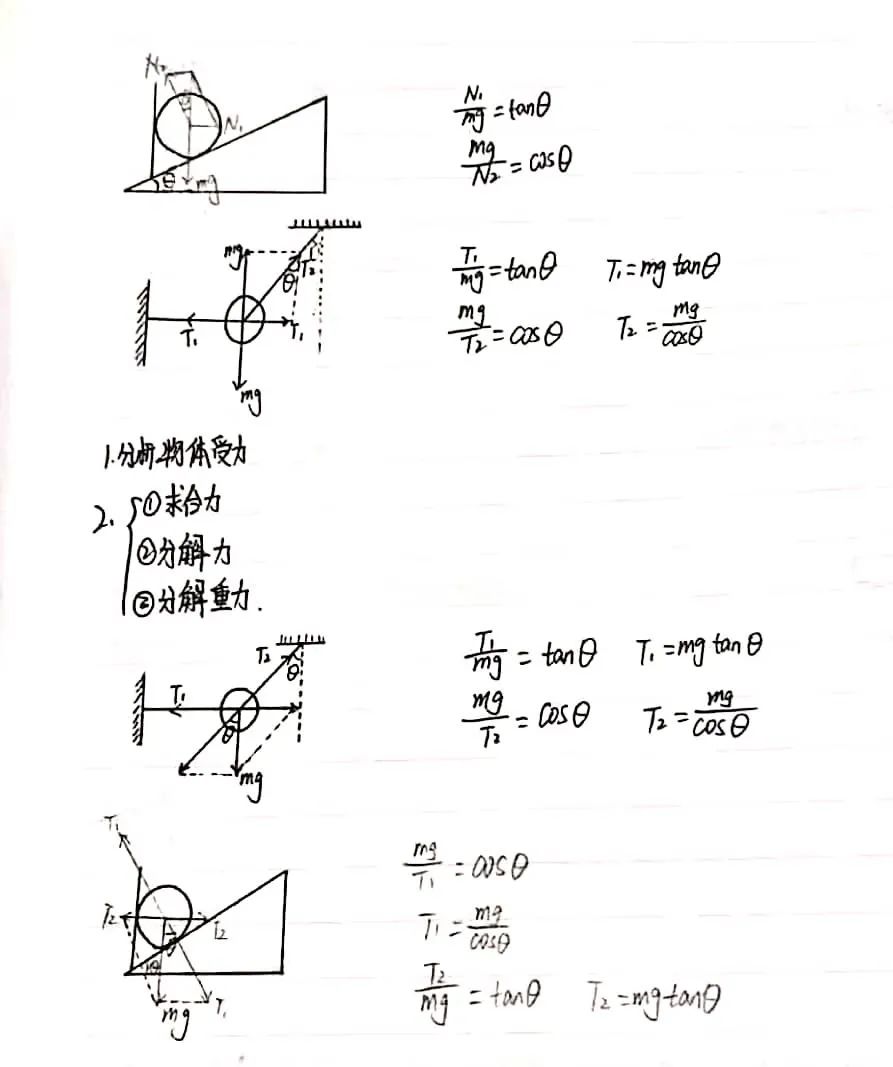 N₂
N₁
θ
mg
N₁/mg = tanθ
mg/N₂ = cosθ
mg
θ
T₂
T₁
T₁
mg
T₁/mg = tanθ T₁ = mg tanθ
mg/T₂ = cosθ T₂ = mg/cosθ
1.分析物体受力
2. ①求合力
②分解力
③分解重力.
T₂
θ
T₁
θ
mg
T₁/mg = tanθ T₁ = mg tanθ
mg/T₂ = cosθ T₂ = mg/cosθ
T₁
T₂
T₂
θ
mg
T₁
mg/T₁ = cosθ
T₁ = mg/cosθ
T₂/mg = tanθ T₂ = mg tanθ